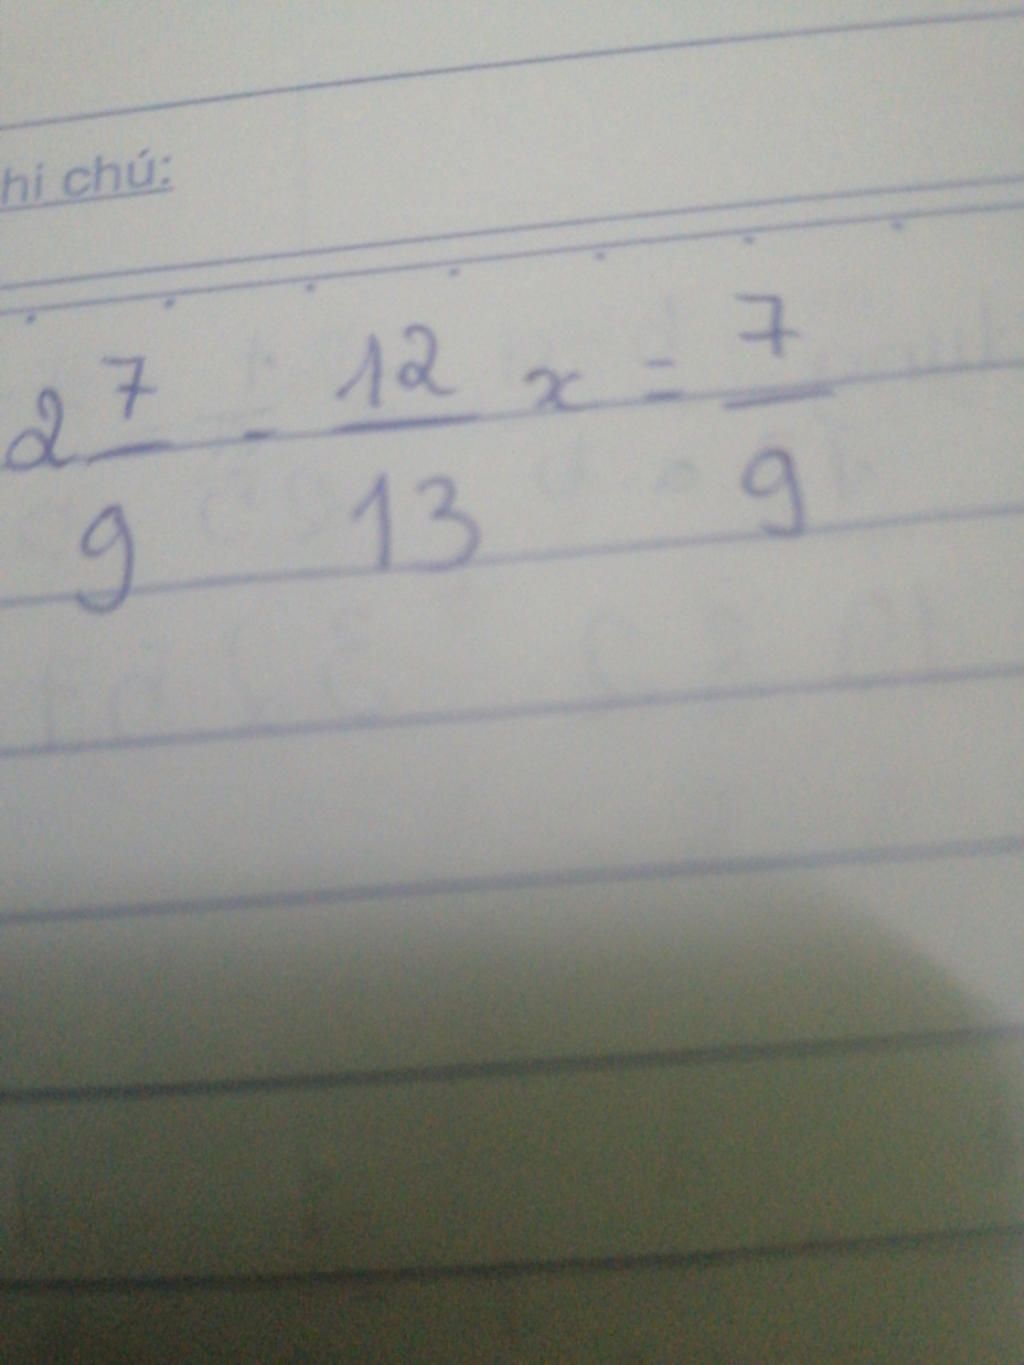 hi chú:
2 7/9 - 12/13 x = 7/9